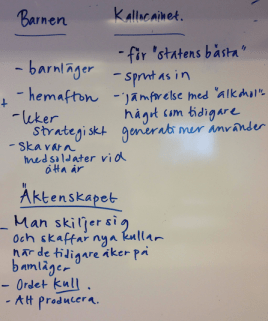 Barnen
- barnläger
- hemafton
+
- leker
strategiskt
- ska vara
medsoldater vid
åtta år
Kallocainet.
- för "statens bästa"
- sprutas in
- jämförelse med "alkohol"-
något som tidigare
generationer använder
Äktenskapet
- Man skiljer sig
och skaffar nya kullar
när de tidigare åker på
barnläger
- Ordet kull.
- Att producera.